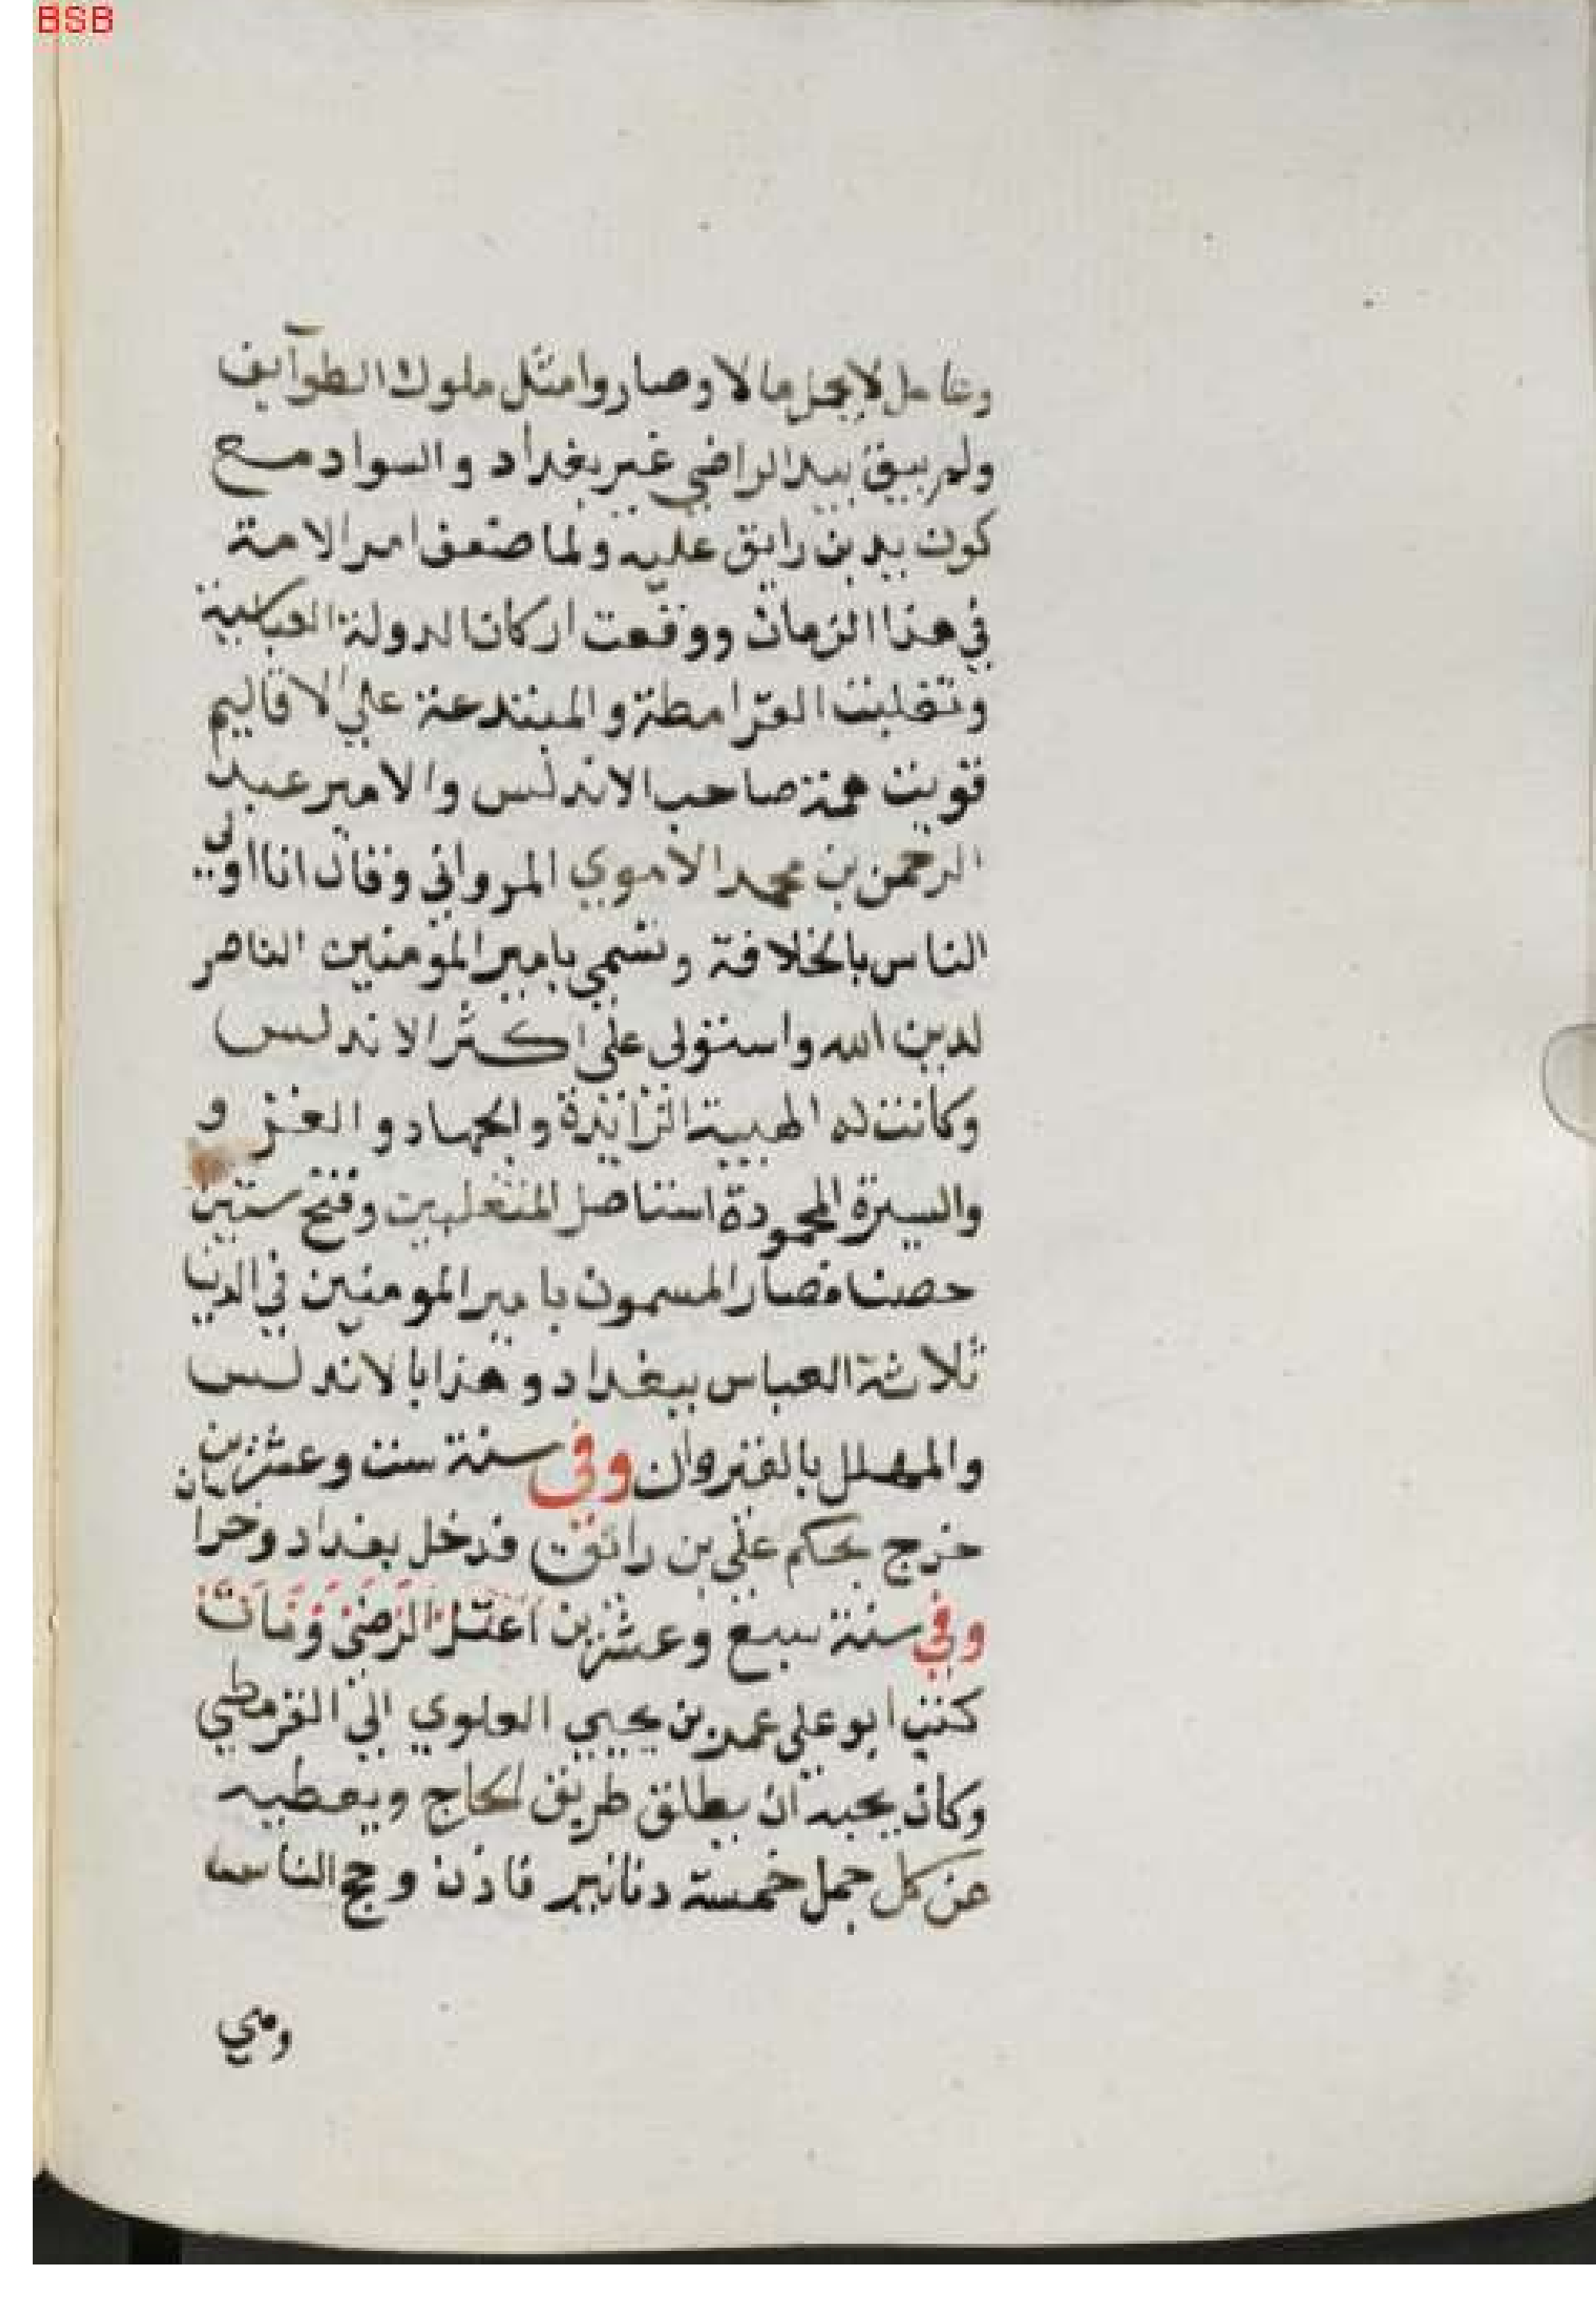 BSB
وعامل لا يحمل مالا وصاروا مثل ملوك الطوآيف
ولم يبيق بيد الراضي غير بغداد والسواد مع
كون يد بن رايق عليه ولما ضعف امر الامة
في هذا الزمان ووقعت اركان الدولة العباسية
وتغلبت القرامطة والمبتدعة علي الاقاليم
قويت همة صاحب الاندلس والامير عبد
الرحمن بن محمد الاموي المرواني وقال انا اولي
الناس بالخلافة وتسمي بامير المؤمنين الناصر
لدين الله واستولى على اكثر الاندلس
وكانت له الهيبة الزائدة والجهاد و الغز و
والسيرة المحمودة استاصل المتغلبين وفتح ستين
حصنا فصار المسمون بامير المومنين في الدنيا
ثلاثة العباس ببغداد وهذا بالاندلس
والمهلل بالقيروان وفي سنة ست وعشرين
خرج بحكم على بن رائق فدخل بغداد وخراسان
وفي سنة سبع وعشرين اعتل الرضى ومات
كتب ابو علي عمر بن يحيي العلوي الي القرمطي
وكان يحبه ان يطلق طريق الحاج ويعطيه
عن كل جمل خمسة دنانير فاذن وحج الناس
ومي